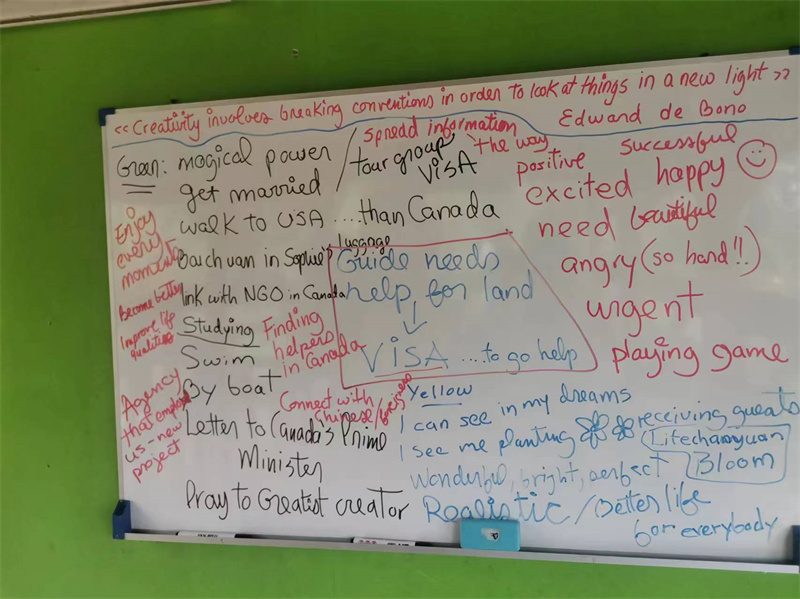 << Creativity involves breaking conventions in order to look at things in a new light >>
Edward de Bono
Green: magical power
get married
walk to USA ....than Canada
Baichuan in Sophie's luggage
link with NGO in Canada
Studying
Swim
By boat
Letter to Canada's Prime
Minister
Pray to Greatist creator
/ tour group
VISA
spread information
the way
Enjoy
every
moment
Become better
Improve life
qualities
Agency
that employ
us - new
project
Finding
helpers
in Canada
Connect with
Chinese/
Guide needs
help for land
↓
VISA ....to go help
positive
successful
excited happy
need beautiful
angry (so hard!!)
urgent
playing game
Yellow
I can see in my dreams
I see me planting receiving guests
Lifechanyuan
Bloom
Wonderful, bright, perfect
Realistic / Better life
for everybody